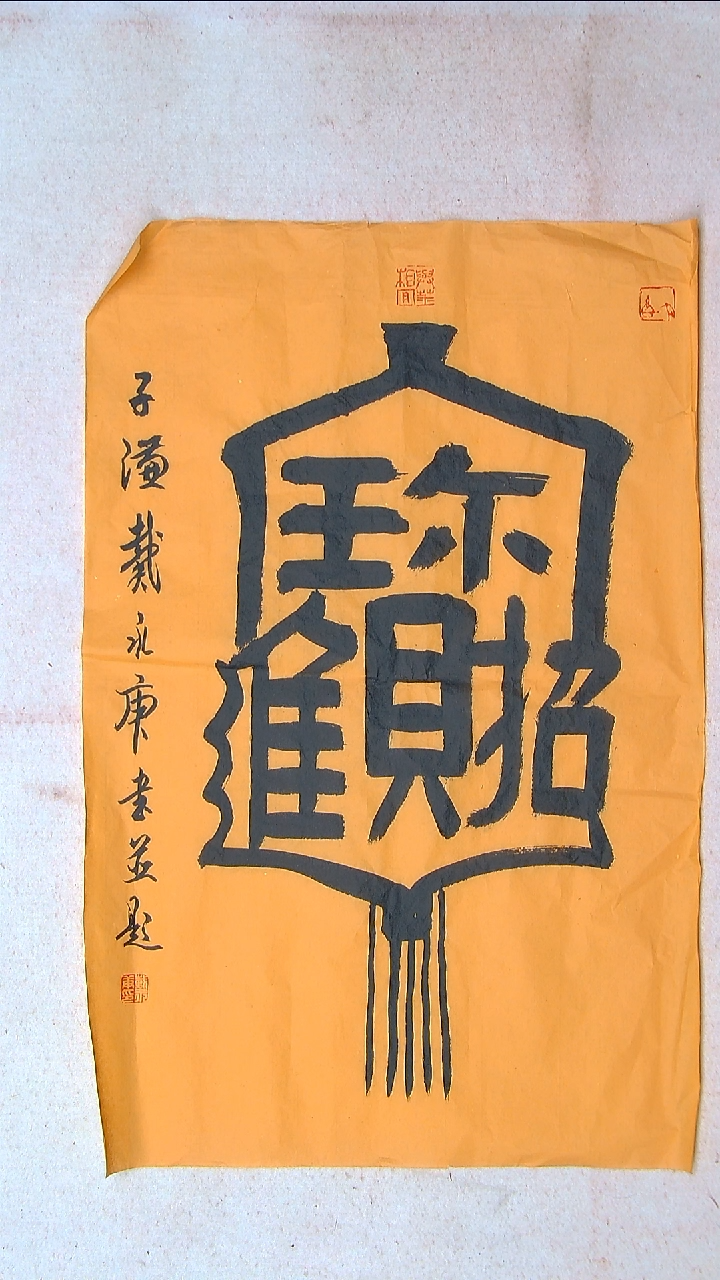 招財進寶
子濂戴永庚書並題